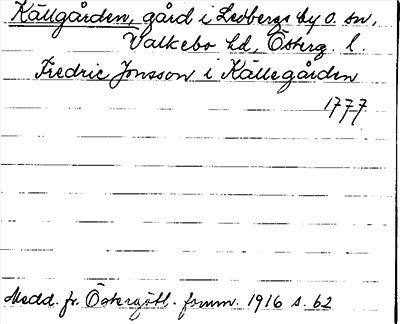 Källgården, gård i Ledbergs by o. sn,
Valkebo hd, Österg. l.
Fredric Jonsson i Källegården
1777
Medd. fr. Östergötl. fornm. 1916 s. 62